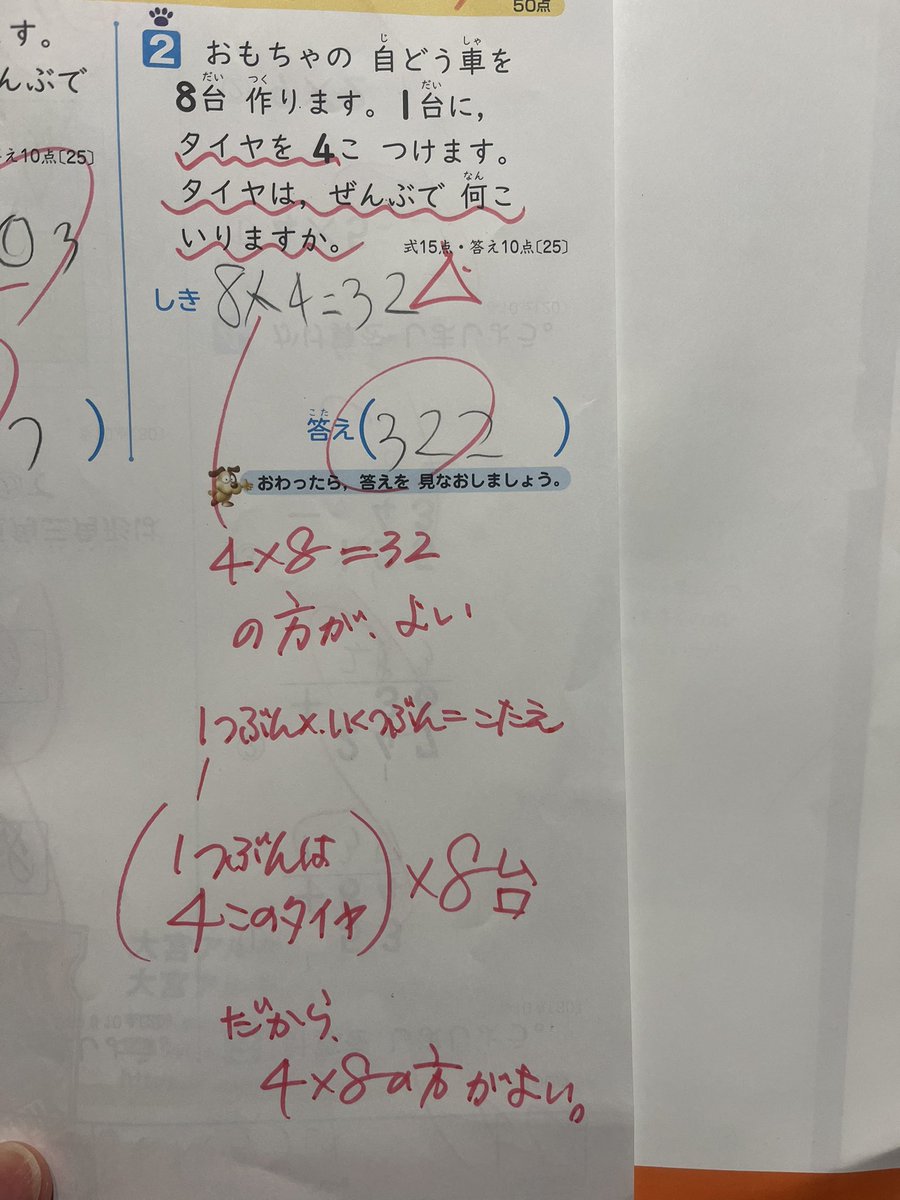 50点
す。
んぶで
え10点〔25〕
03
2 おもちゃの 自どう車を
8台 作ります。1台に，
タイヤを 4こ つけます。
タイヤは，ぜんぶで 何こ
いりますか。
式15点・答え10点〔25〕
しき 8×4=32
答え(322)
おわったら，答えを 見なおしましょう。
4×8=32
の方が、よい
1つぶん×いくつぶん=こたえ
(1つぶんは
4このタイヤ)×8台
だから、
4×8の方がよい。